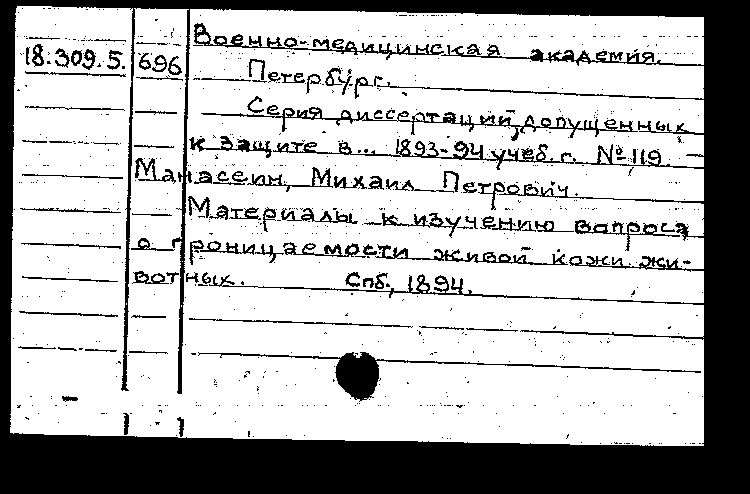 Военно-медицинская академия.
18.309.5. 696 Петербург.
Серия диссертаций, допущенных
к защите в... 1893-94 учеб. г. № 119.
Манасеин, Михаил Петрович.
Материалы к изучению вопроса
о проницаемости живой кожи жи-
вотных. Спб., 1894.